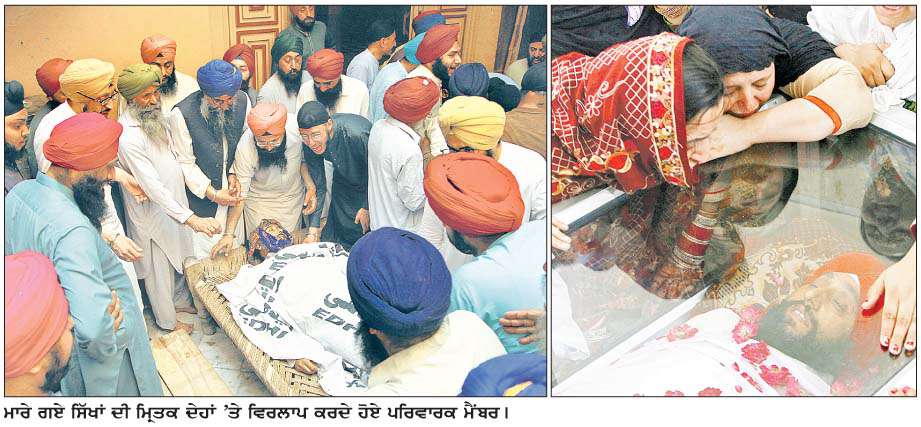 EDHI
ਮਾਰੇ ਗਏ ਸਿੱਖਾਂ ਦੀ ਮ੍ਰਿਤਕ ਦੇਹਾਂ 'ਤੇ ਵਿਰਲਾਪ ਕਰਦੇ ਹੋਏ ਪਰਿਵਾਰਕ ਮੈਂਬਰ।